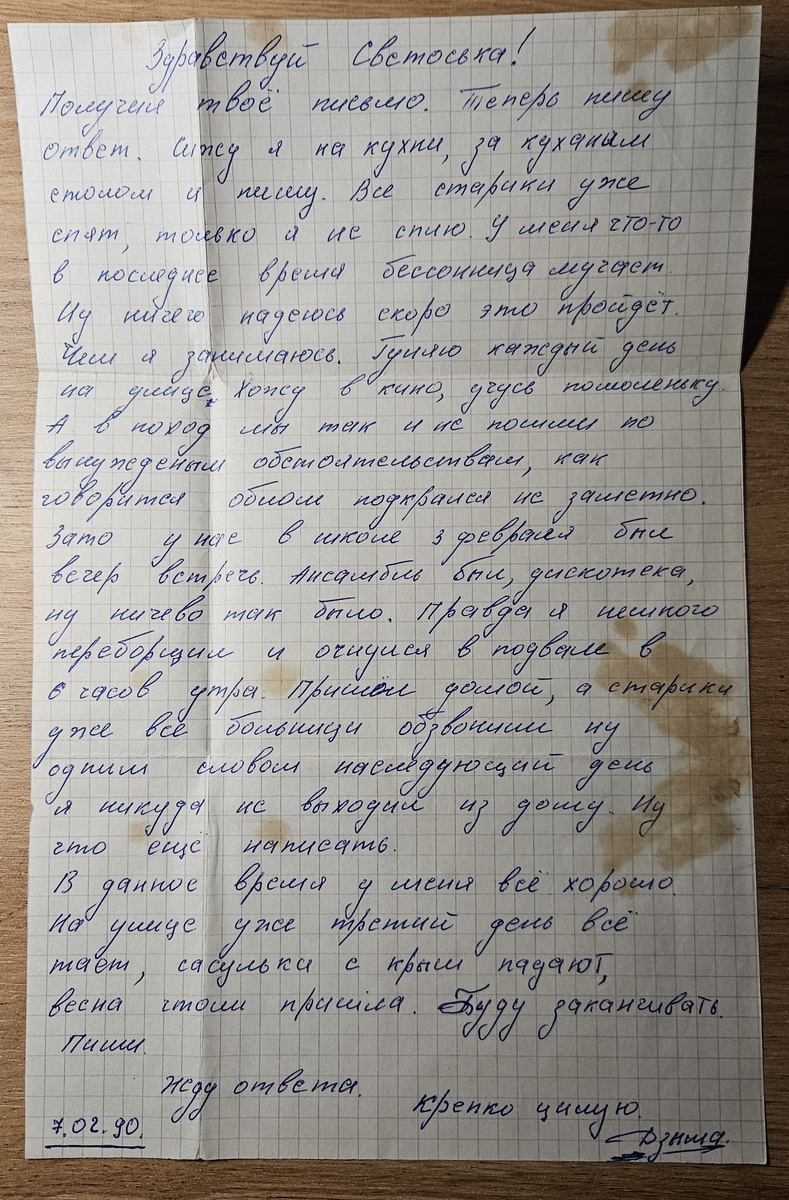 Здравствуй Светоська!
Получил твоё письмо. Теперь пишу
ответ. Сижу я на кухни, за куханым
столом и пишу. Все старики уже
спят, только я не сплю. У меня что-то
в последнее время бессонница мучает.
Ну ничего надеюсь скоро это пройдёт.
Чем я занимаюсь. Гуляю каждый день
на улице. Хожу в кино, учусь помоленьку.
А в поход мы так и не пошли по
вынужденым обстоятельствам, как
говорится облом подкрался не заметно.
Зато у нас в школе 3 февраля был
вечер встречь. Ансамбль был, дискотека,
ну ничево так было. Правда я немного
переборщил и очнулся в подвале в
6 часов утра. Пришёл домой, а старики
уже все больници обзвонили ну
одним словом наследующий день
я никуда не выходил из дому. Ну
что ещё написать.
В данное время у меня всё хорошо.
На улице уже третий день всё
тает, сасульки с крыш падают,
весна чтоли пришла. Буду заканчивать.
Пиши.
Жду ответа.
Крепко цилую.
7.02.90.
Дзыма.